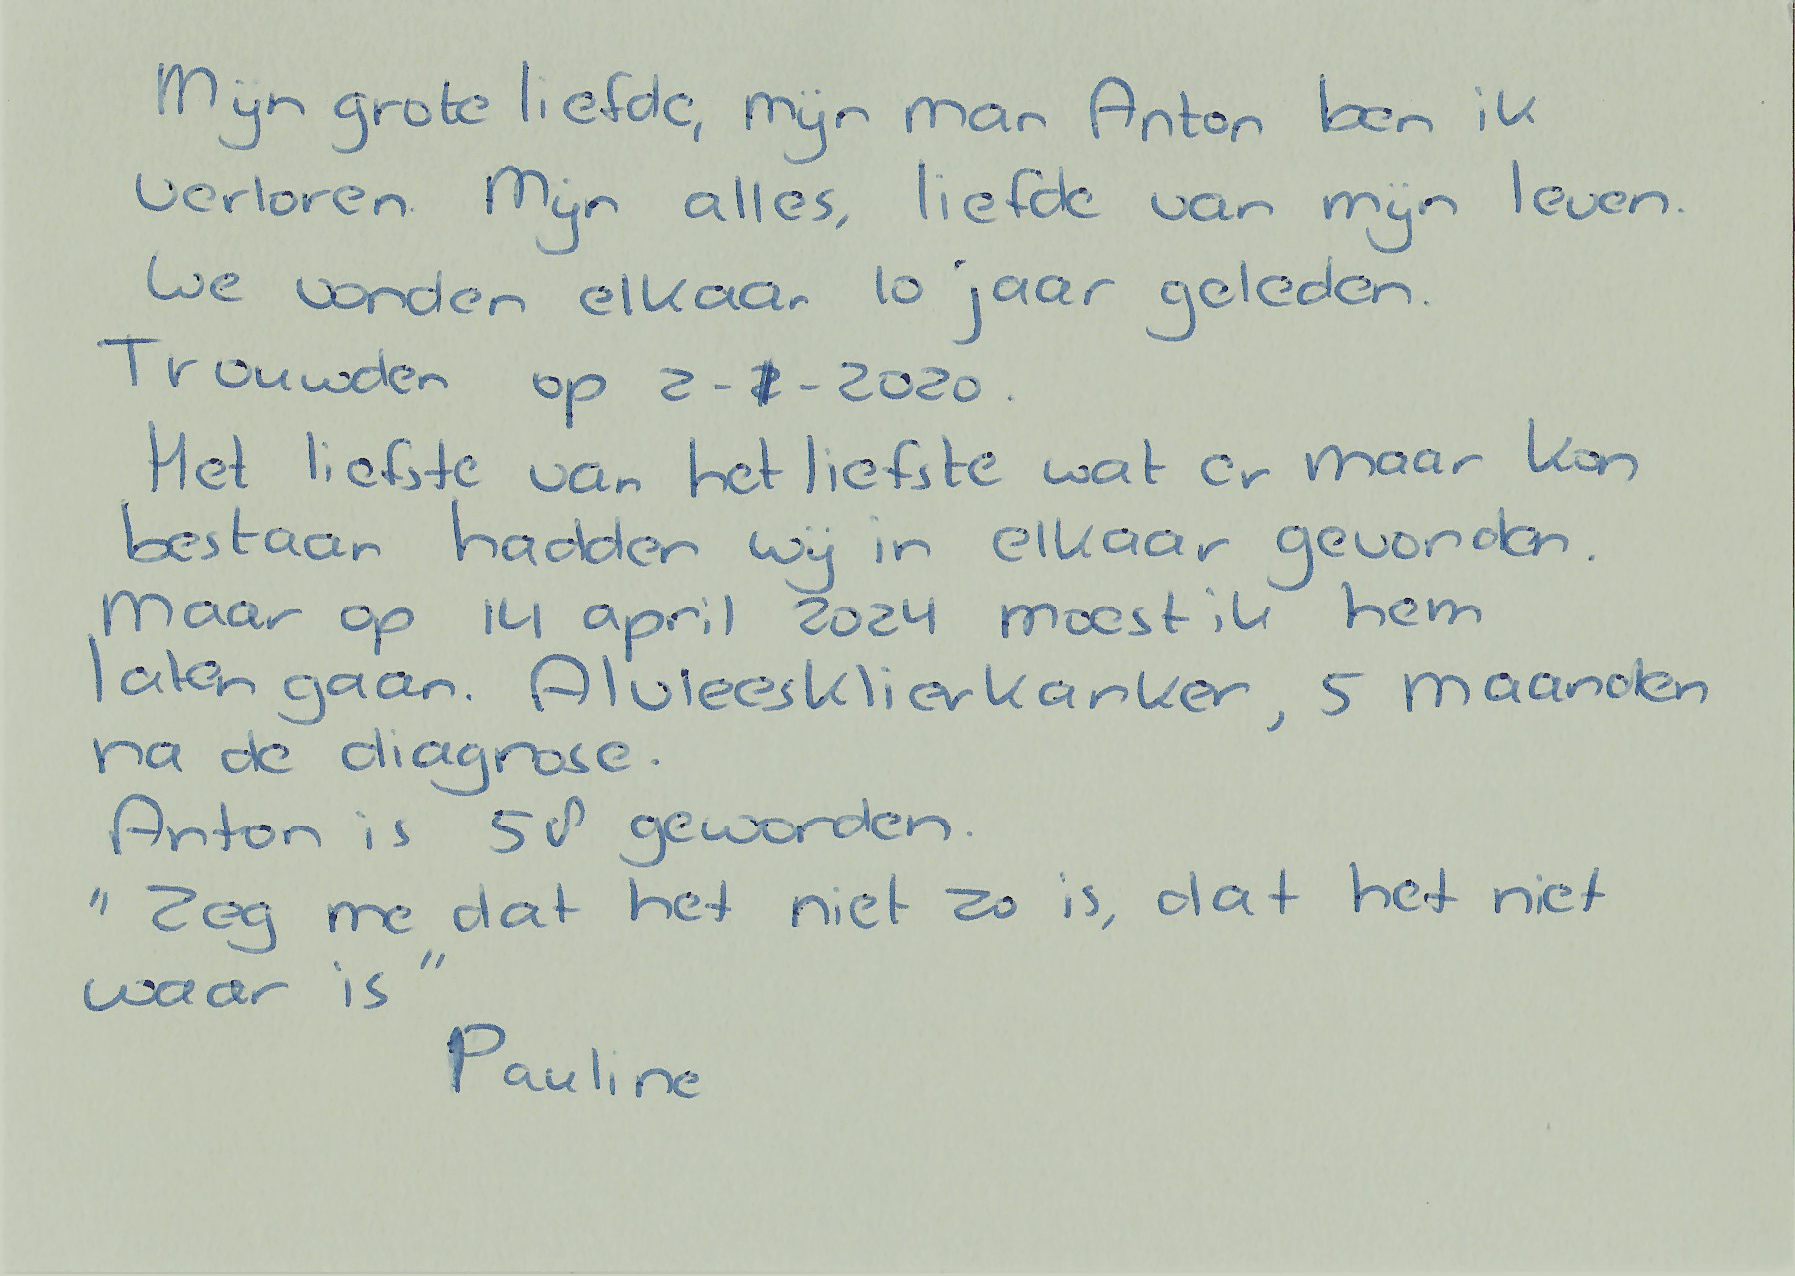 Mijn grote liefde, mijn man Anton ben ik
verloren. Mijn alles, liefde van mijn leven.
We vonden elkaar 10 jaar geleden.
Trouwden op 2- -2020.
Het liefste van het liefste wat er maar kon
bestaan hadden wij in elkaar gevonden.
Maar op 14 april 2024 moest ik hem
laten gaan. Alvleesklierkanker, 5 maanden
na de diagnose.
Anton is 58 geworden.
"Zeg me dat het niet zo is, dat het niet
waar is"
Pauline